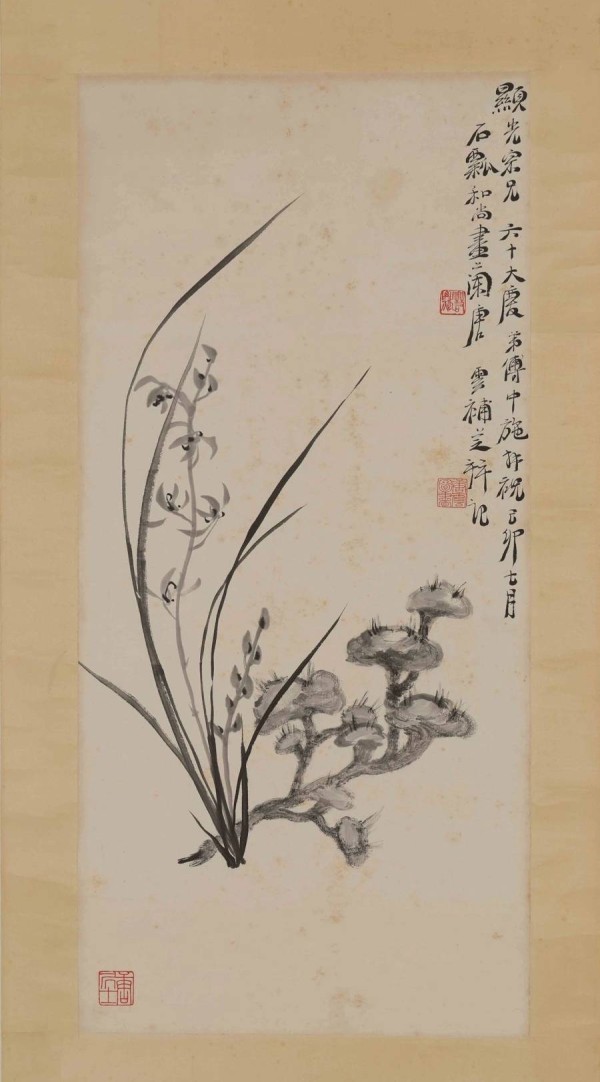 顯光宗兄 六十大慶 弟傅中施拜祝 己卯七月
石瓢和尚畫蘭唐雲補芝并記